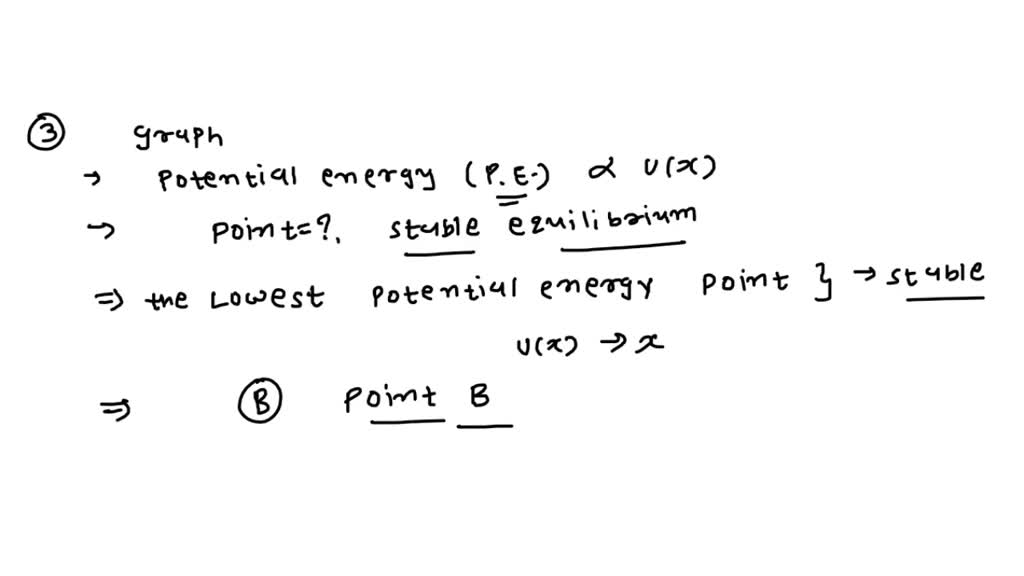 ③ graph
→ Potential energy (P.E.) ∝ U(x)
→ Point=?, stable equilibrium
⇒ the Lowest Potential energy Point } → stable
U(x) → x
⇒ Ⓑ Point B